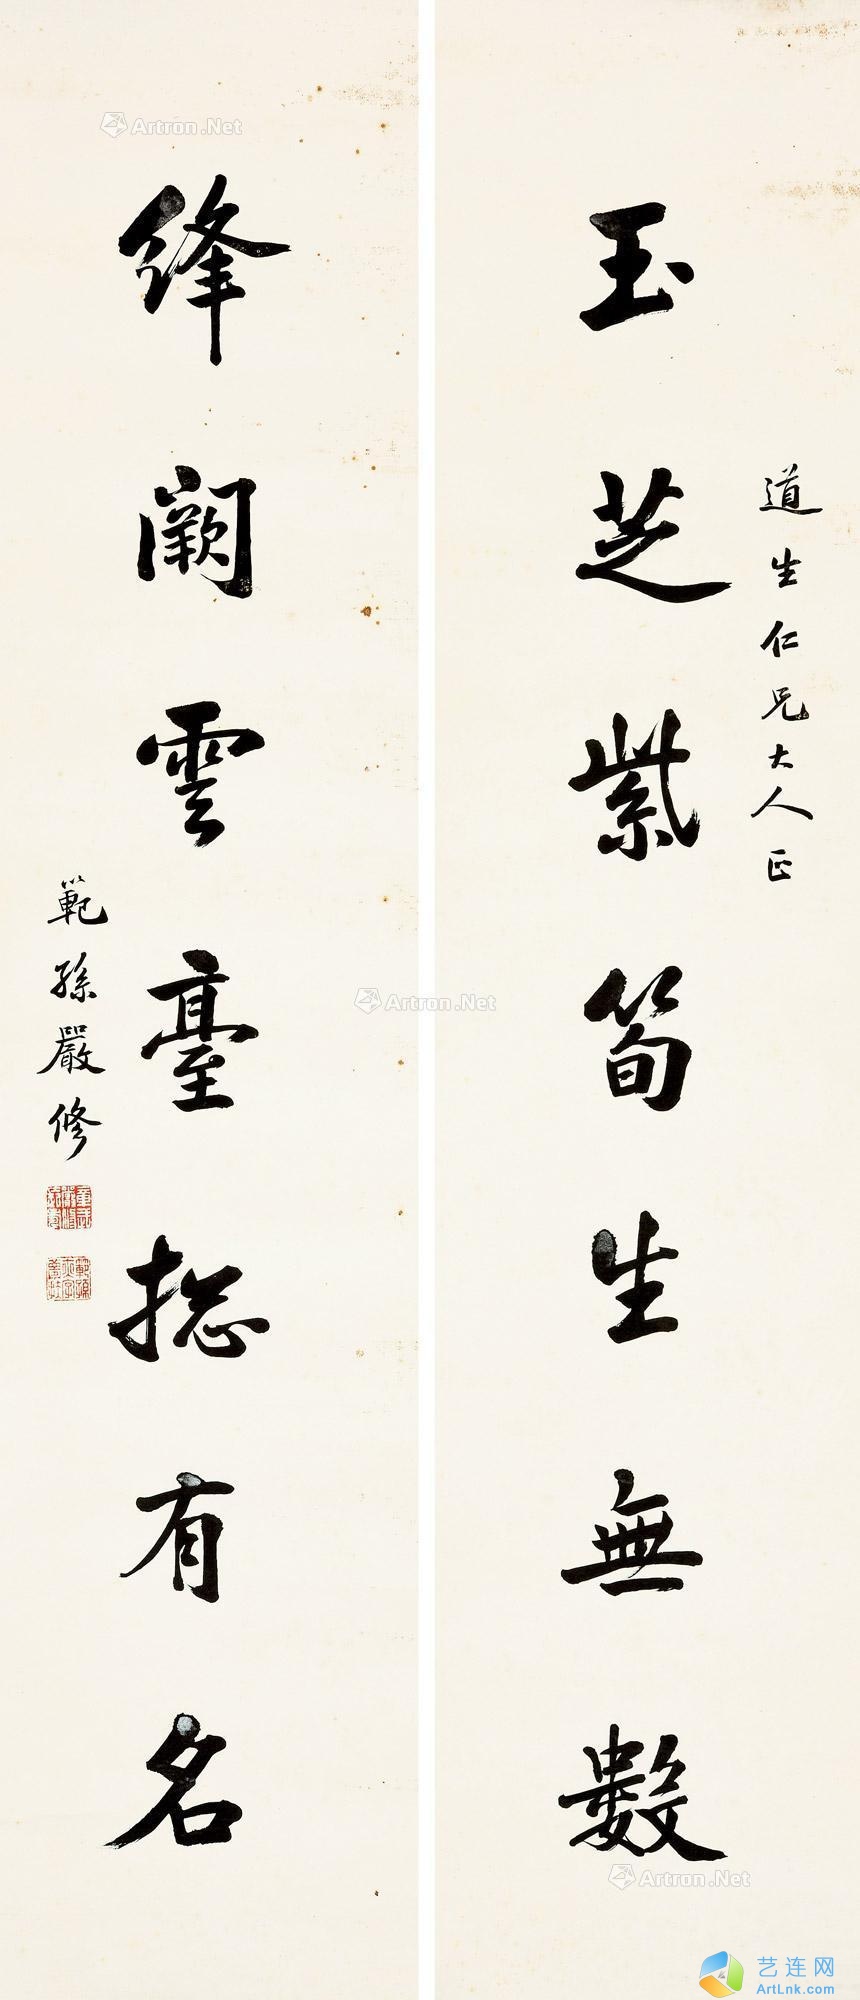 道生仁兄大人正
玉芝紫筍生無數
絳闕雲臺揔有名
範孫嚴修
Artron.Net
Artron.Net
Artron.Net
艺连网
ArtLnk.com